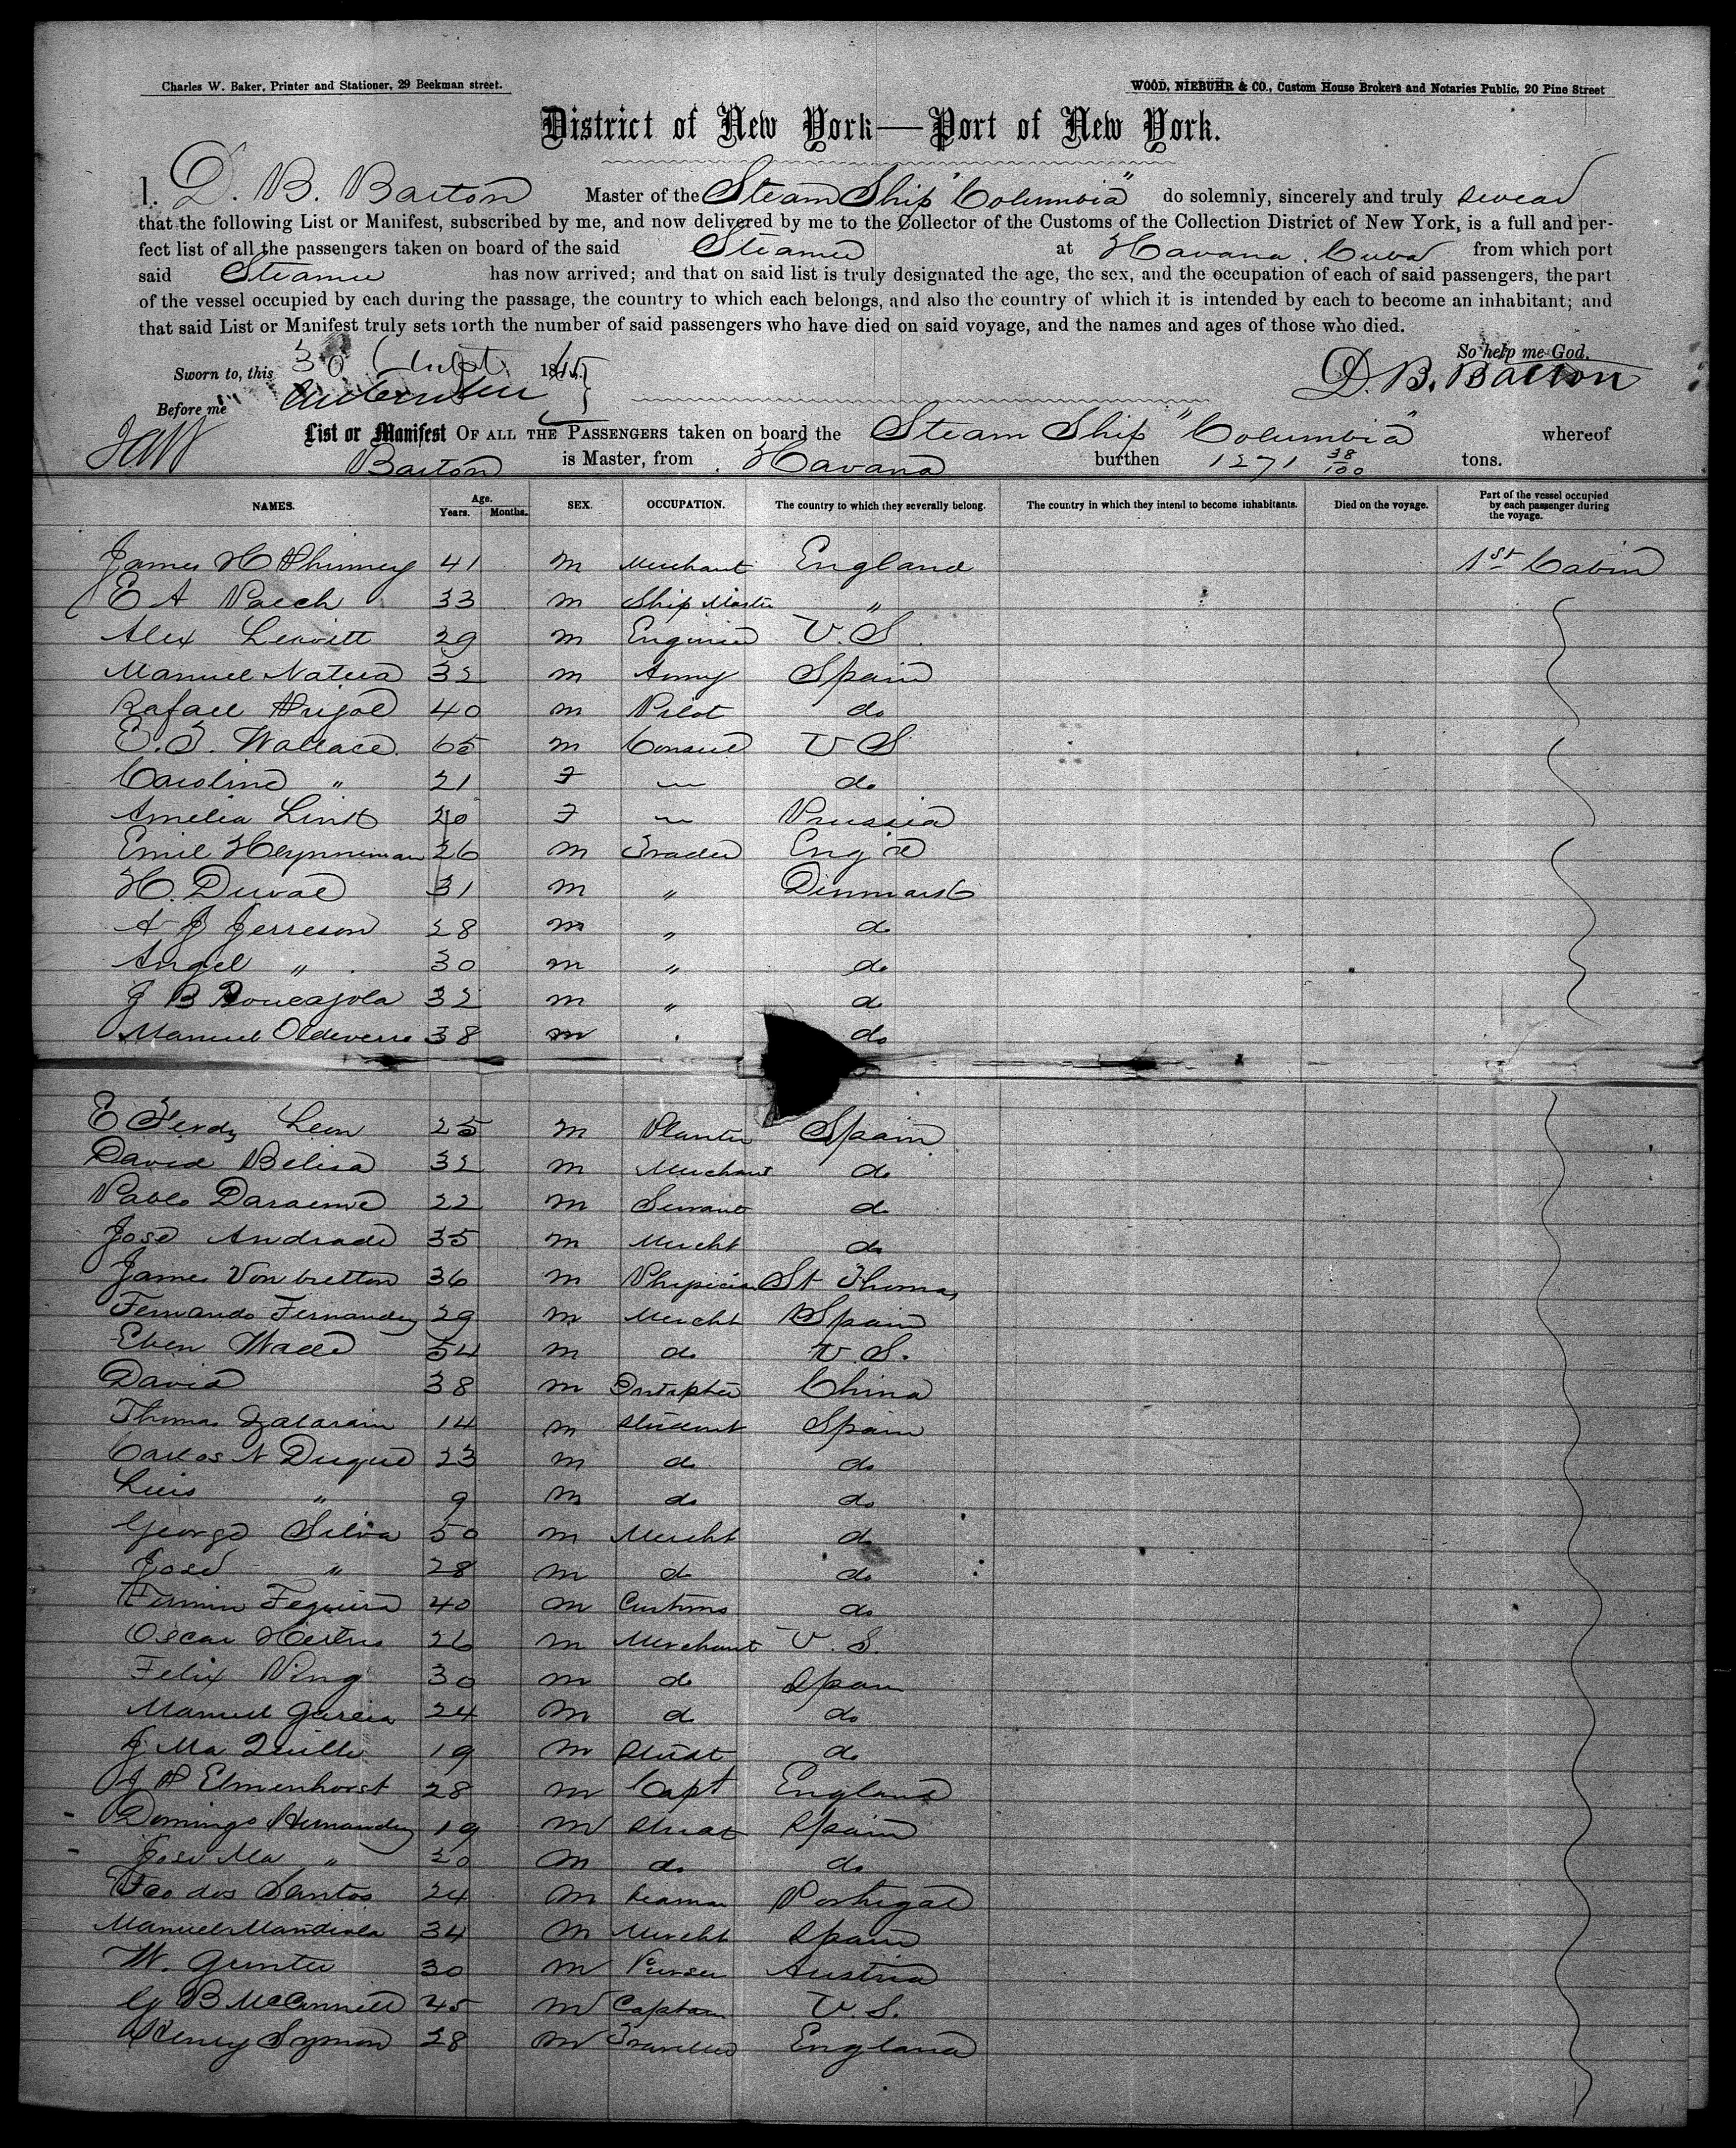 Charles W. Baker, Printer and Stationer, 29 Beekman street.
WOOD, NIEBUHR & CO., Custom House Brokers and Notaries Public, 20 Pine Street
District of New York—Port of New York.
I, D. B. Barton Master of the Steam Ship "Columbia" do solemnly, sincerely and truly swear
that the following List or Manifest, subscribed by me, and now delivered by me to the Collector of the Customs of the Collection District of New York, is a full and per-
fect list of all the passengers taken on board of the said Steamer at Havana, Cuba from which port
said Steamer has now arrived; and that on said list is truly designated the age, the sex, and the occupation of each of said passengers, the part
of the vessel occupied by each during the passage, the country to which each belongs, and also the country of which it is intended by each to become an inhabitant; and
that said List or Manifest truly sets forth the number of said passengers who have died on said voyage, and the names and ages of those who died.
So help me God.
Sworn to, this 30 186
D. B. Barton
Before me
List or Manifest OF ALL THE PASSENGERS taken on board the Steam Ship "Columbia" whereof
Barton is Master, from Havana burthen 1271 38/100 tons.
NAMES. Age. Years. Months. SEX. OCCUPATION. The country to which they severally belong. The country in which they intend to become inhabitants. Died on the voyage. Part of the vessel occupied by each passenger during the voyage.
James H Phinney 41 m Merchant England 1st Cabin
E A 33 m Ship Master "
Alex Leavitt 29 m Engineer U.S
Manuel Natera 32 m Army Spain
Rafael Pujol 40 m Pilot do
E. S. Wallace 65 m Consul U S
Caroline " 21 F — do
Amelia Link 20 F — Prussia
Emil Heynneman 26 m Trader Eng'd
H. Duval 31 m " Dinmark
A J Jerreson 28 m " do
Angel " 30 m " do
J B 32 m " do
Manuel 38 m do
E Ferdz Leon 25 m Planter Spain
David Belisa 32 m Merchant do
Pablo 22 m Servant do
José Andrade 35 m Mercht do
James Vonbretton 36 m Physician St Thomas
Fernando Fernandez 29 m Mercht Spain
Eben Wade 54 m do U.S.
David 38 m China
Thomas 14 m Student Spain
Carlos N Duque 23 m do do
Luis " 9 m do do
George Silva 50 m Mercht do
José " 28 m do do
Fermin 40 m Customs do
Oscar 26 m Merchant U.S.
Felix 30 m do Spain
Manuel Garcia 24 m do do
J Ma 19 m Studt do
J P Elmenhorst 28 m Capt England
Domingo Hernandez 19 m Studt Spain
José Ma " 20 m do do
Fco dos Santos 24 m Seaman Portugal
Manuel Mandiola 34 m Mercht Spain
W. Grunter 30 m Purser Austria
G B McConnell 45 m Captain U.S.
Henry Symon 28 m Traveller England